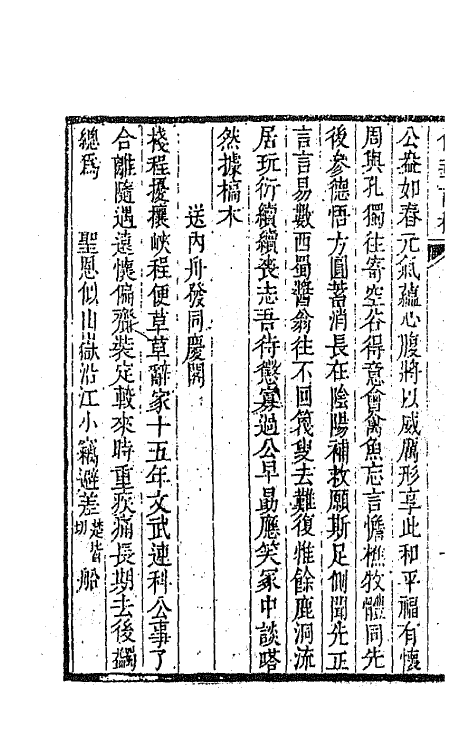 公益如春元氣蘊心腹將以威厲形享此和平福有懷
周與孔獨往寄空谷得意會禽魚忘言憺樵牧體同先
後參德悟方圓蓄消長在陰陽補救願斯足側聞先正
言言易數西蜀醬翁往不回篾叟去難復惟餘鹿洞流
居玩衍續續喪志吾待懲寡過公早勗應笑冢中談嗒
然據槁木
送內舟發同慶閣
棧程擾攘峽程便草草辭家十五年文武連科公事了
合離隨遇遠懷偏裝定較來時重疾痛長期去後蠲
總爲 聖恩似山嶽沿江小竊避差船 楚皆切